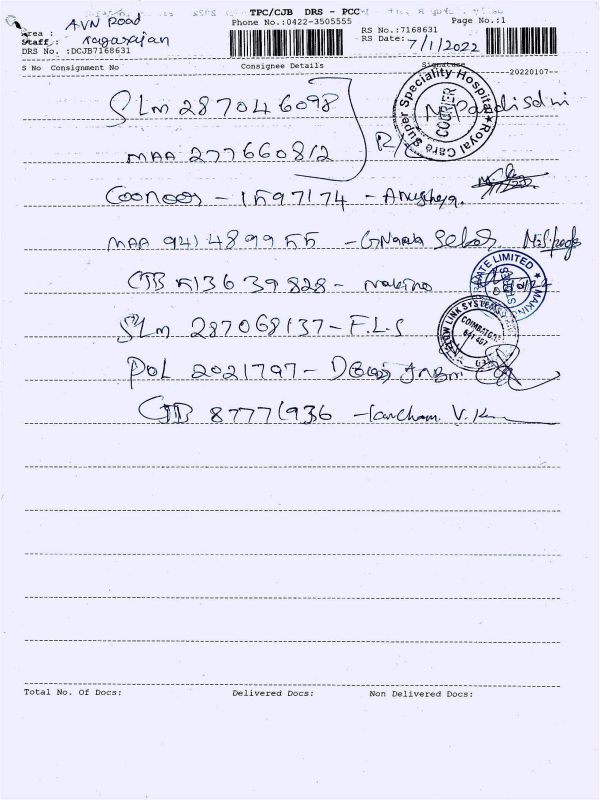 TPC/CJB DRS - PCC
AVN Road
Area :
Phone No.:0422-3505555
Page No.:1
Staff : Nagarajan
RS No.:7168631
DRS No. :DCJB7168631
RS Date: 7/1/2022
S No Consignment No
Consignee Details
Signature
20220107
SLM 287046098
Royal Care Super Speciality Hospital
COURIER
MAA 277660812
R/C
Coonoor - 1597174 - Anushya.
MAA 941489955 -
CJB 513639828 - Makino
SLM 287068137 - F.L.S
COIMBATORE
POL 2021797 -
CJB 87771936 - V. K
Total No. Of Docs:
Delivered Docs:
Non Delivered Docs: